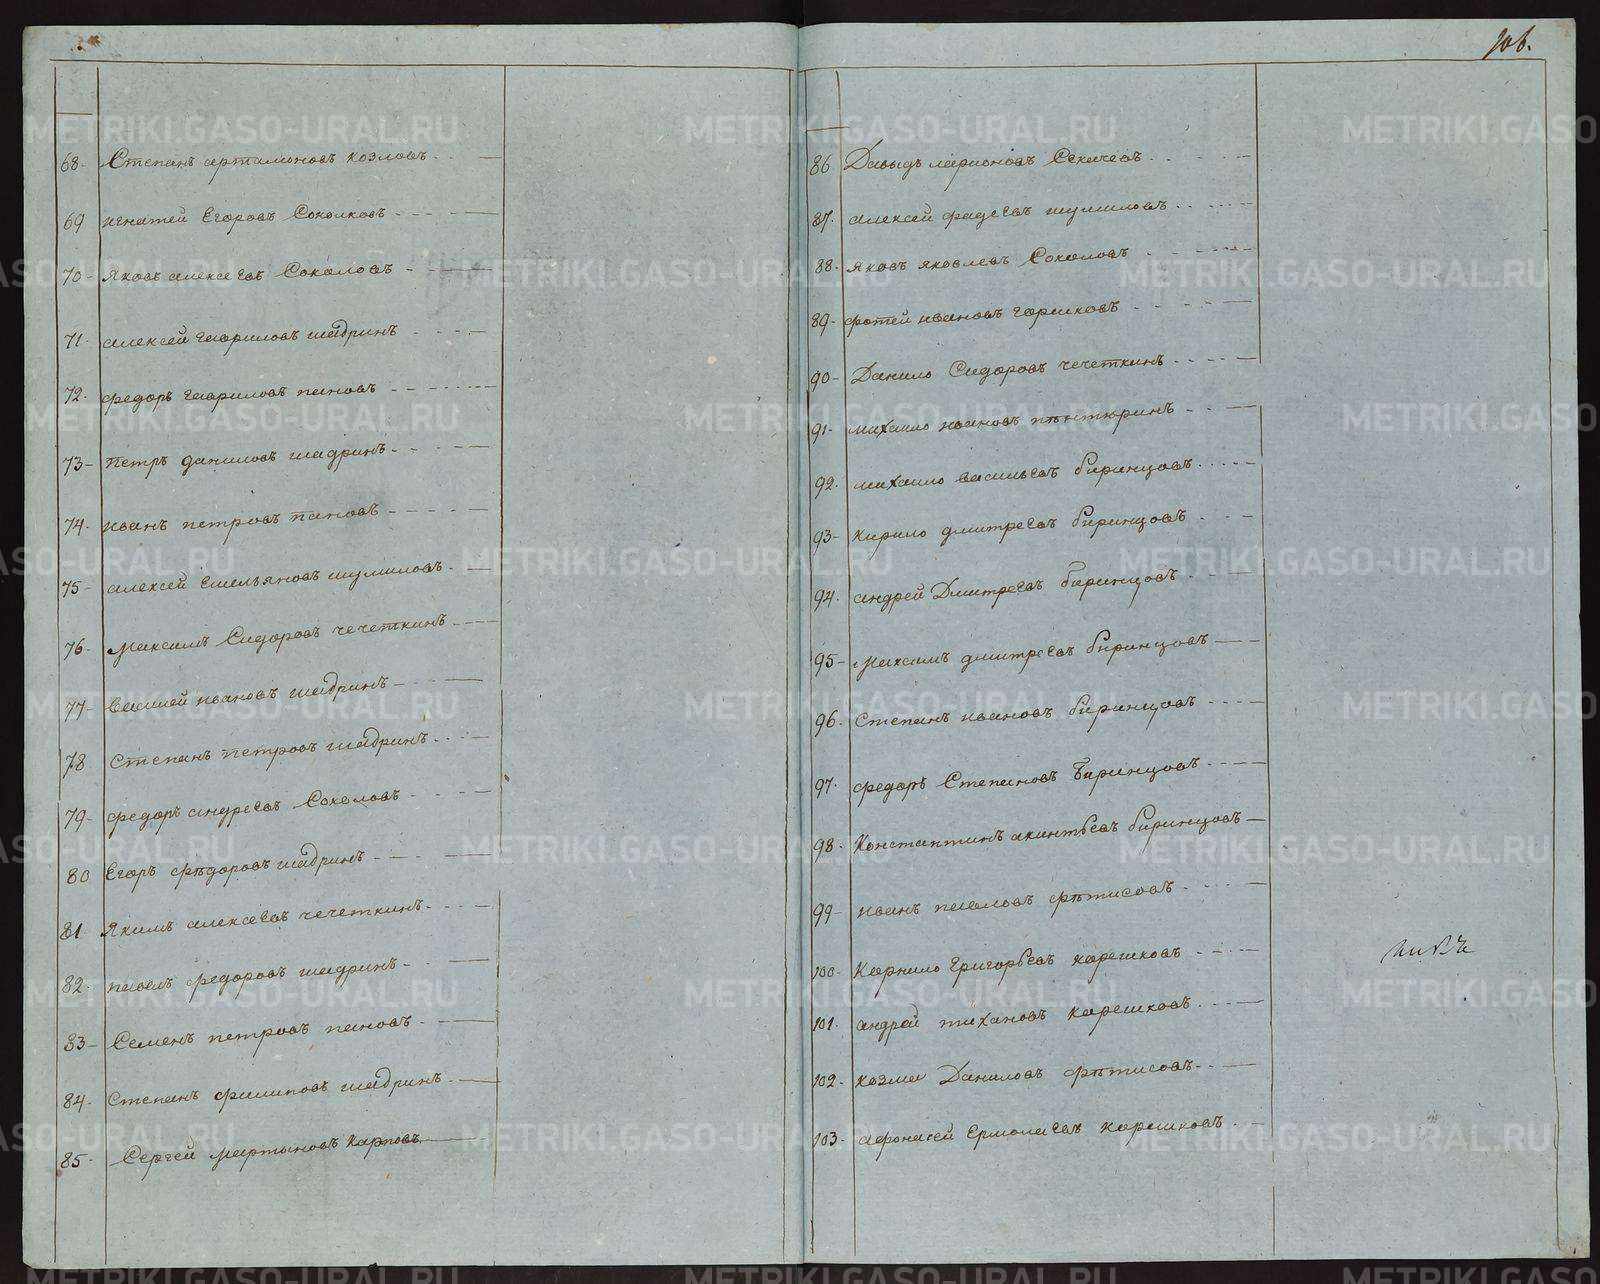 106.
68- Степанъ артамоновъ козловъ
69 игнатей Егоровъ Соколковъ
70- яковъ алексеевъ Соколовъ
71. алексей гавриловъ шадринъ
72. федоръ гавриловъ пановъ
73- петръ даниловъ шадринъ
74. иванъ петровъ пановъ
75- алексей Емельяновъ шумиловъ
76- Максимъ Сидоровъ чечеткинъ
77- василей ивановъ шадринъ
78 степанъ петровъ шадринъ
79- федоръ андреевъ Соколовъ
80 Егоръ фѣдоровъ шадринъ
81 Якимъ алексеевъ чечеткинъ
82. павелъ федоровъ шадринъ
83- Семенъ петровъ пановъ
84- Степанъ филиповъ шадринъ
85- Сергей Мартыновъ Карповъ
86 Давыдъ ларионовъ Секачевъ
87. алексей фадеевъ шумиловъ
88- яковъ яковлевъ Соколовъ
89- фотей ивановъ горшковъ
90- Данило Сидоровъ чечеткинъ
91- михаило ивановъ пѣнтюринъ
92. михаило васильевъ биринцовъ
93- кирило дмитреевъ биринцовъ
94. андрей Дмитреевъ биринцовъ
95- Максимъ дмитреевъ биринцовъ
96. степанъ ивановъ биринцовъ
97. федоръ Степановъ биринцовъ
98. Константинъ акинтьевъ биринцовъ
99- иванъ павловъ фѣтисовъ
100- Карнило Григорьевъ карешковъ
101. андрей тихановъ карешковъ
102- козма Даниловъ фѣтисовъ
103- афонасей Ермолаевъ карешковъ
METRIKI.GASO-URAL.RU